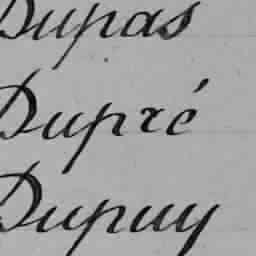 Dupas
Dupré
Dupuy